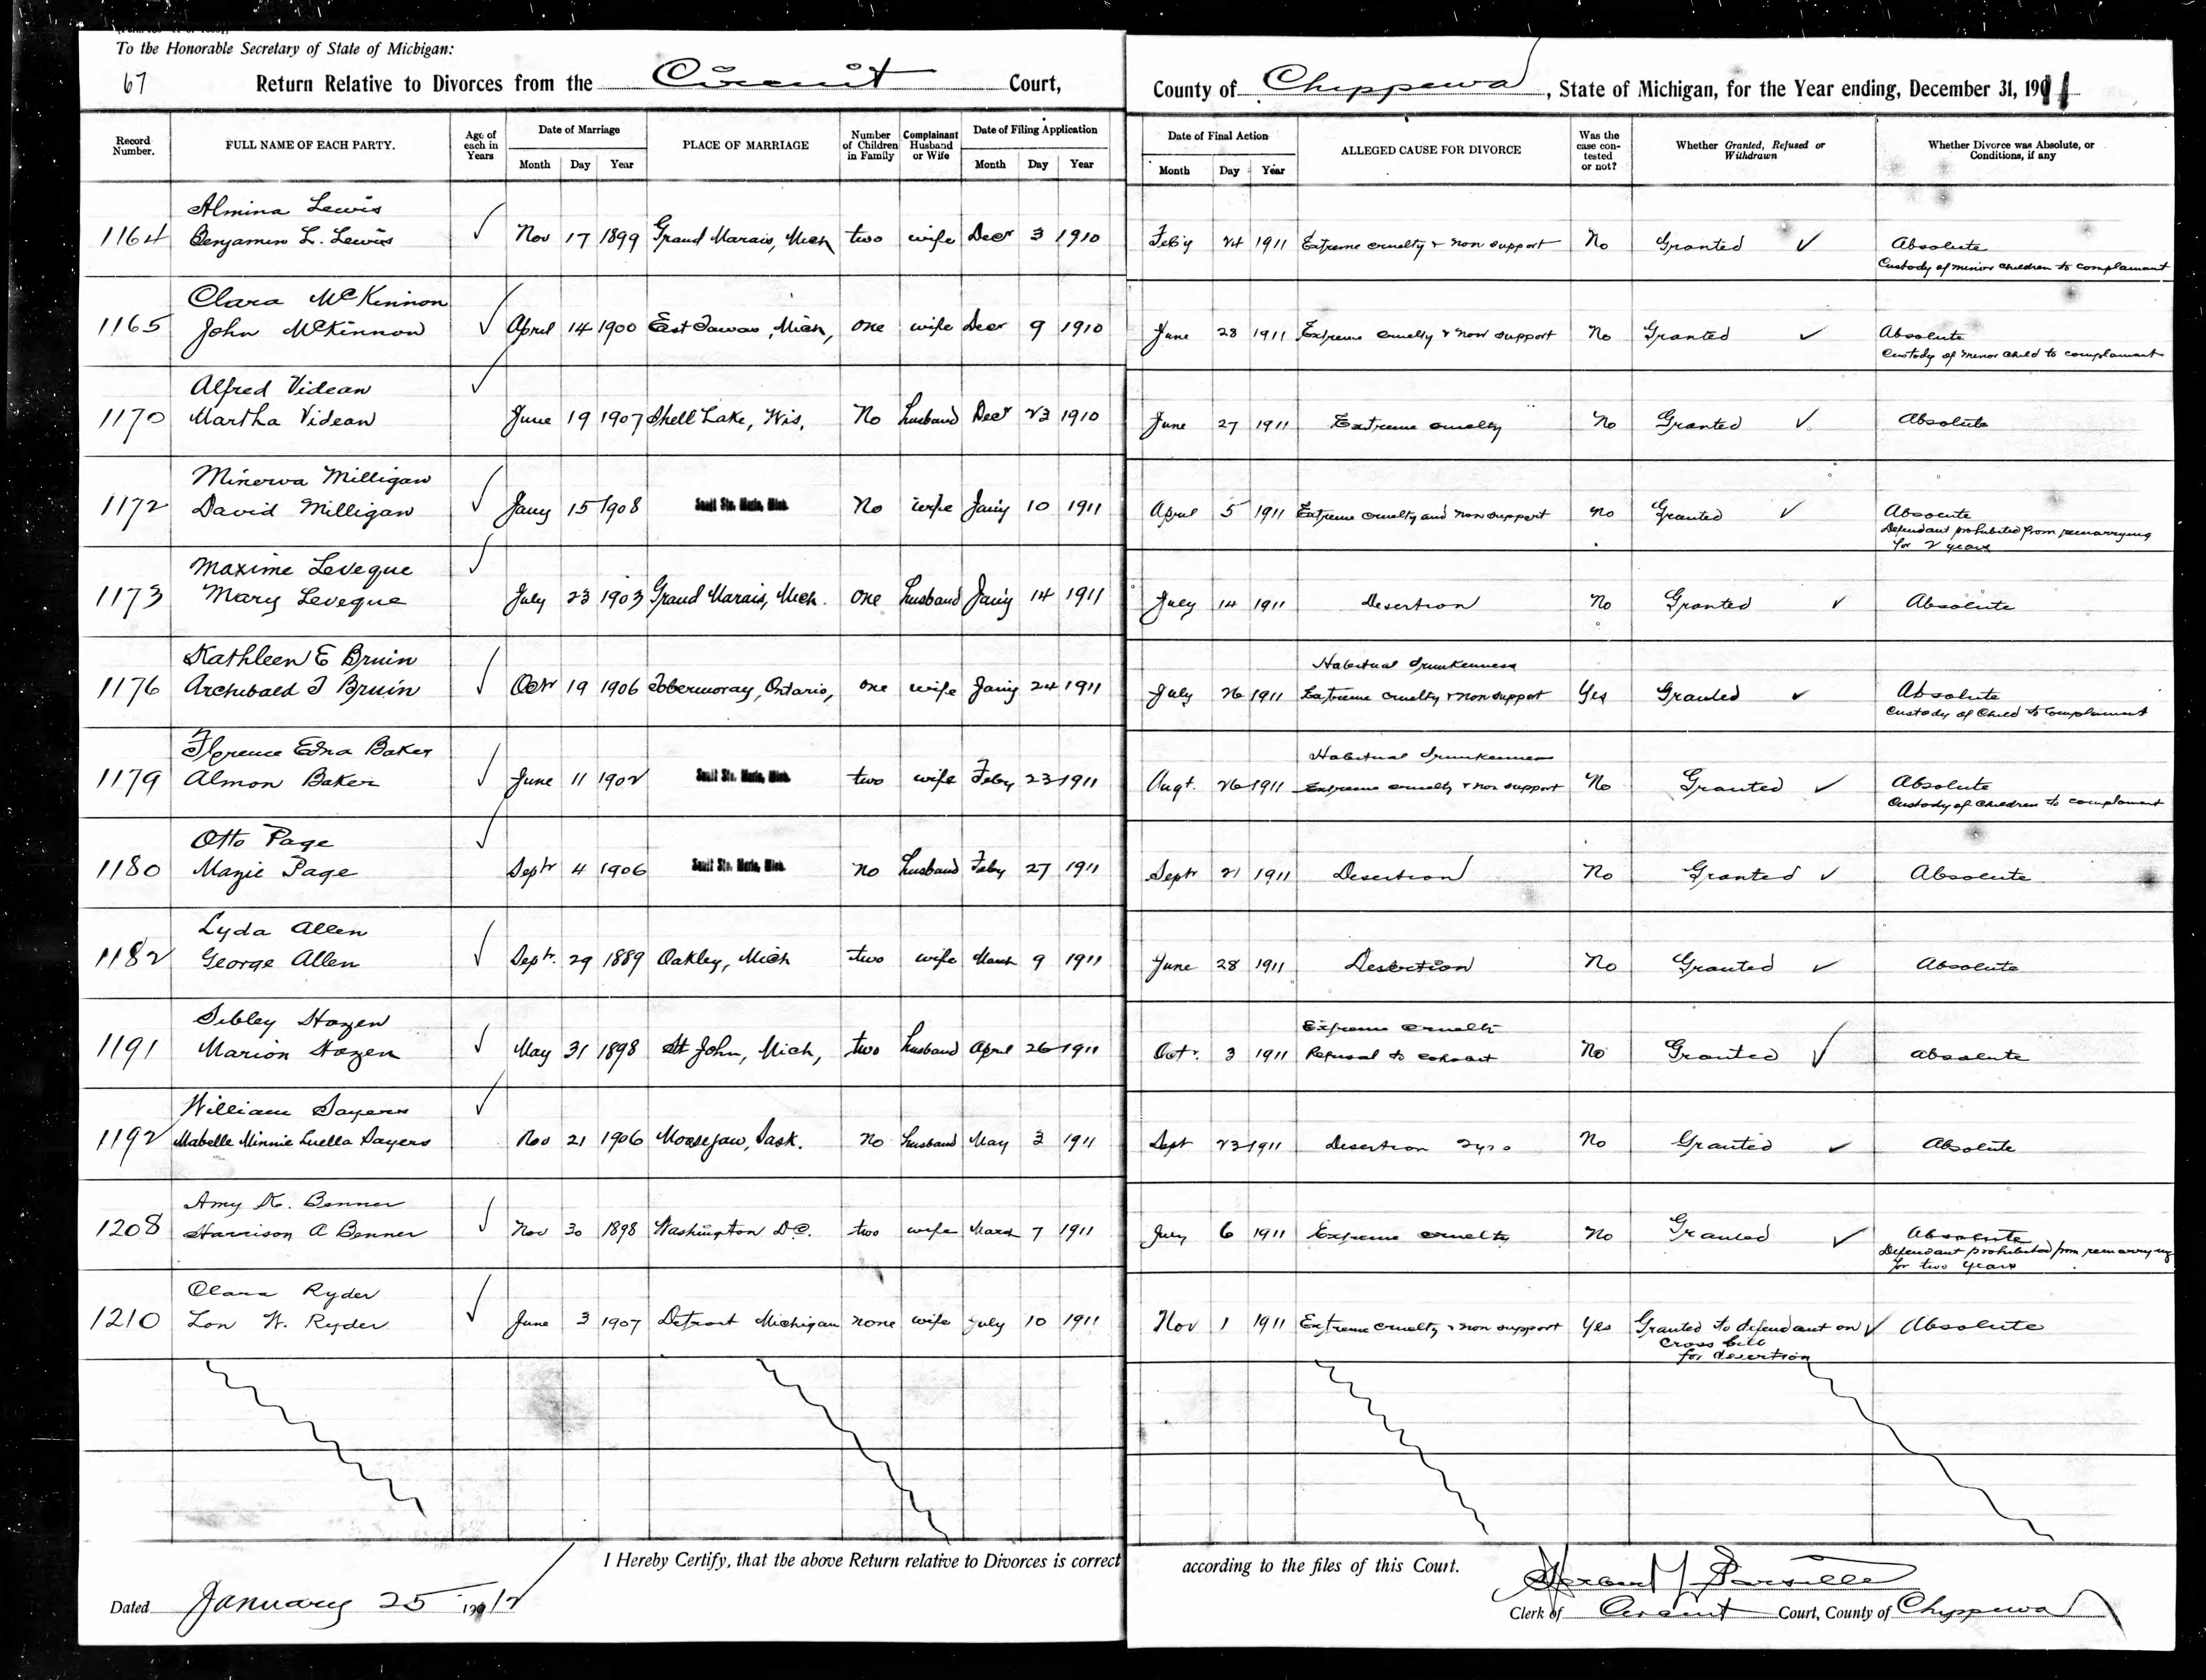 To the Honorable Secretary of State of Michigan:
67 Return Relative to Divorces from the Circuit Court, County of Chippewa, State of Michigan, for the Year ending, December 31, 1911
Record Number. FULL NAME OF EACH PARTY. Age of each in Years Date of Marriage Month Day Year PLACE OF MARRIAGE Number of Children in Family Complainant Husband or Wife Date of Filing Application Month Day Year Date of Final Action Month Day Year ALLEGED CAUSE FOR DIVORCE Was the case contested or not? Whether Granted, Refused or Withdrawn Whether Divorce was Absolute, or Conditions, if any
Almina Lewis
1164 Benjamin L. Lewis Nov 17 1899 Grand Marais, Mich two wife Decr 3 1910 Feb'y 24 1911 Extreme cruelty & non support No Granted Absolute
Custody of minor children to complainant
Clara McKinnon
1165 John McKinnon April 14 1900 East Tawas, Mich, one wife Decr 9 1910 June 28 1911 Extreme cruelty & non support No Granted Absolute
Custody of minor child to complainant
Alfred Videan
1170 Martha Videan June 19 1907 Shell Lake, Wis, No husband Decr 23 1910 June 27 1911 Extreme cruelty No Granted Absolute
Minerva Milligan
1172 David Milligan Jany 15 1908 Sault Ste. Marie, Mich. No wife Jan'y 10 1911 April 5 1911 Extreme cruelty and non support no Granted Absolute
Defendant prohibited from remarrying
for 2 years
Maxime Leveque
1173 Mary Leveque July 23 1903 Grand Marais, Mich. one husband Jan'y 14 1911 July 14 1911 Desertion No Granted Absolute
Kathleen E Bruin Habitual drunkenness
1176 Archibald J Bruin Octr 19 1906 Tobermoray, Ontario, one wife Jan'y 24 1911 July 26 1911 Extreme cruelty & non support Yes Granted Absolute
Custody of Child to Complainant
Florence Edna Baker Habitual drunkenness
1179 Almon Baker June 11 1902 Sault Ste. Marie, Mich. two wife Feby 23 1911 Augt. 26 1911 Extreme cruelty & non support No Granted Absolute
Custody of Children to complainant
Otto Page
1180 Mazie Page Septr 4 1906 Sault Ste. Marie, Mich. no husband Feby 27 1911 Septr 21 1911 Desertion No Granted Absolute
Lyda Allen
1182 George Allen Septr. 29 1889 Oakley, Mich two wife March 9 1911 June 28 1911 Desertion No Granted Absolute
Sibley Hazen Extreme cruelty
1191 Marion Hazen May 31 1898 St John, Mich, two husband April 26 1911 Oct. 3 1911 Refusal to cohabit No Granted absolute
William Sayers
1192 Mabelle Minnie Luella Sayers Nov 21 1906 Moosejaw, Sask. no husband May 3 1911 Sept 23 1911 Desertion 2 yrs No Granted Absolute
Amy K. Benner
1208 Harrison A Benner Nov 30 1898 Washington D.C. two wife March 7 1911 July 6 1911 Extreme cruelty No Granted Absolute
Defendant prohibited from remarrying
for two years
Clara Ryder
1210 Lon W. Ryder June 3 1907 Detroit Michigan none wife July 10 1911 Nov 1 1911 Extreme cruelty & non support yes Granted to defendant on Absolute
cross bill
for desertion
I Hereby Certify, that the above Return relative to Divorces is correct according to the files of this Court.
Dated January 25 1912 Clerk of Circuit Court, County of Chippewa